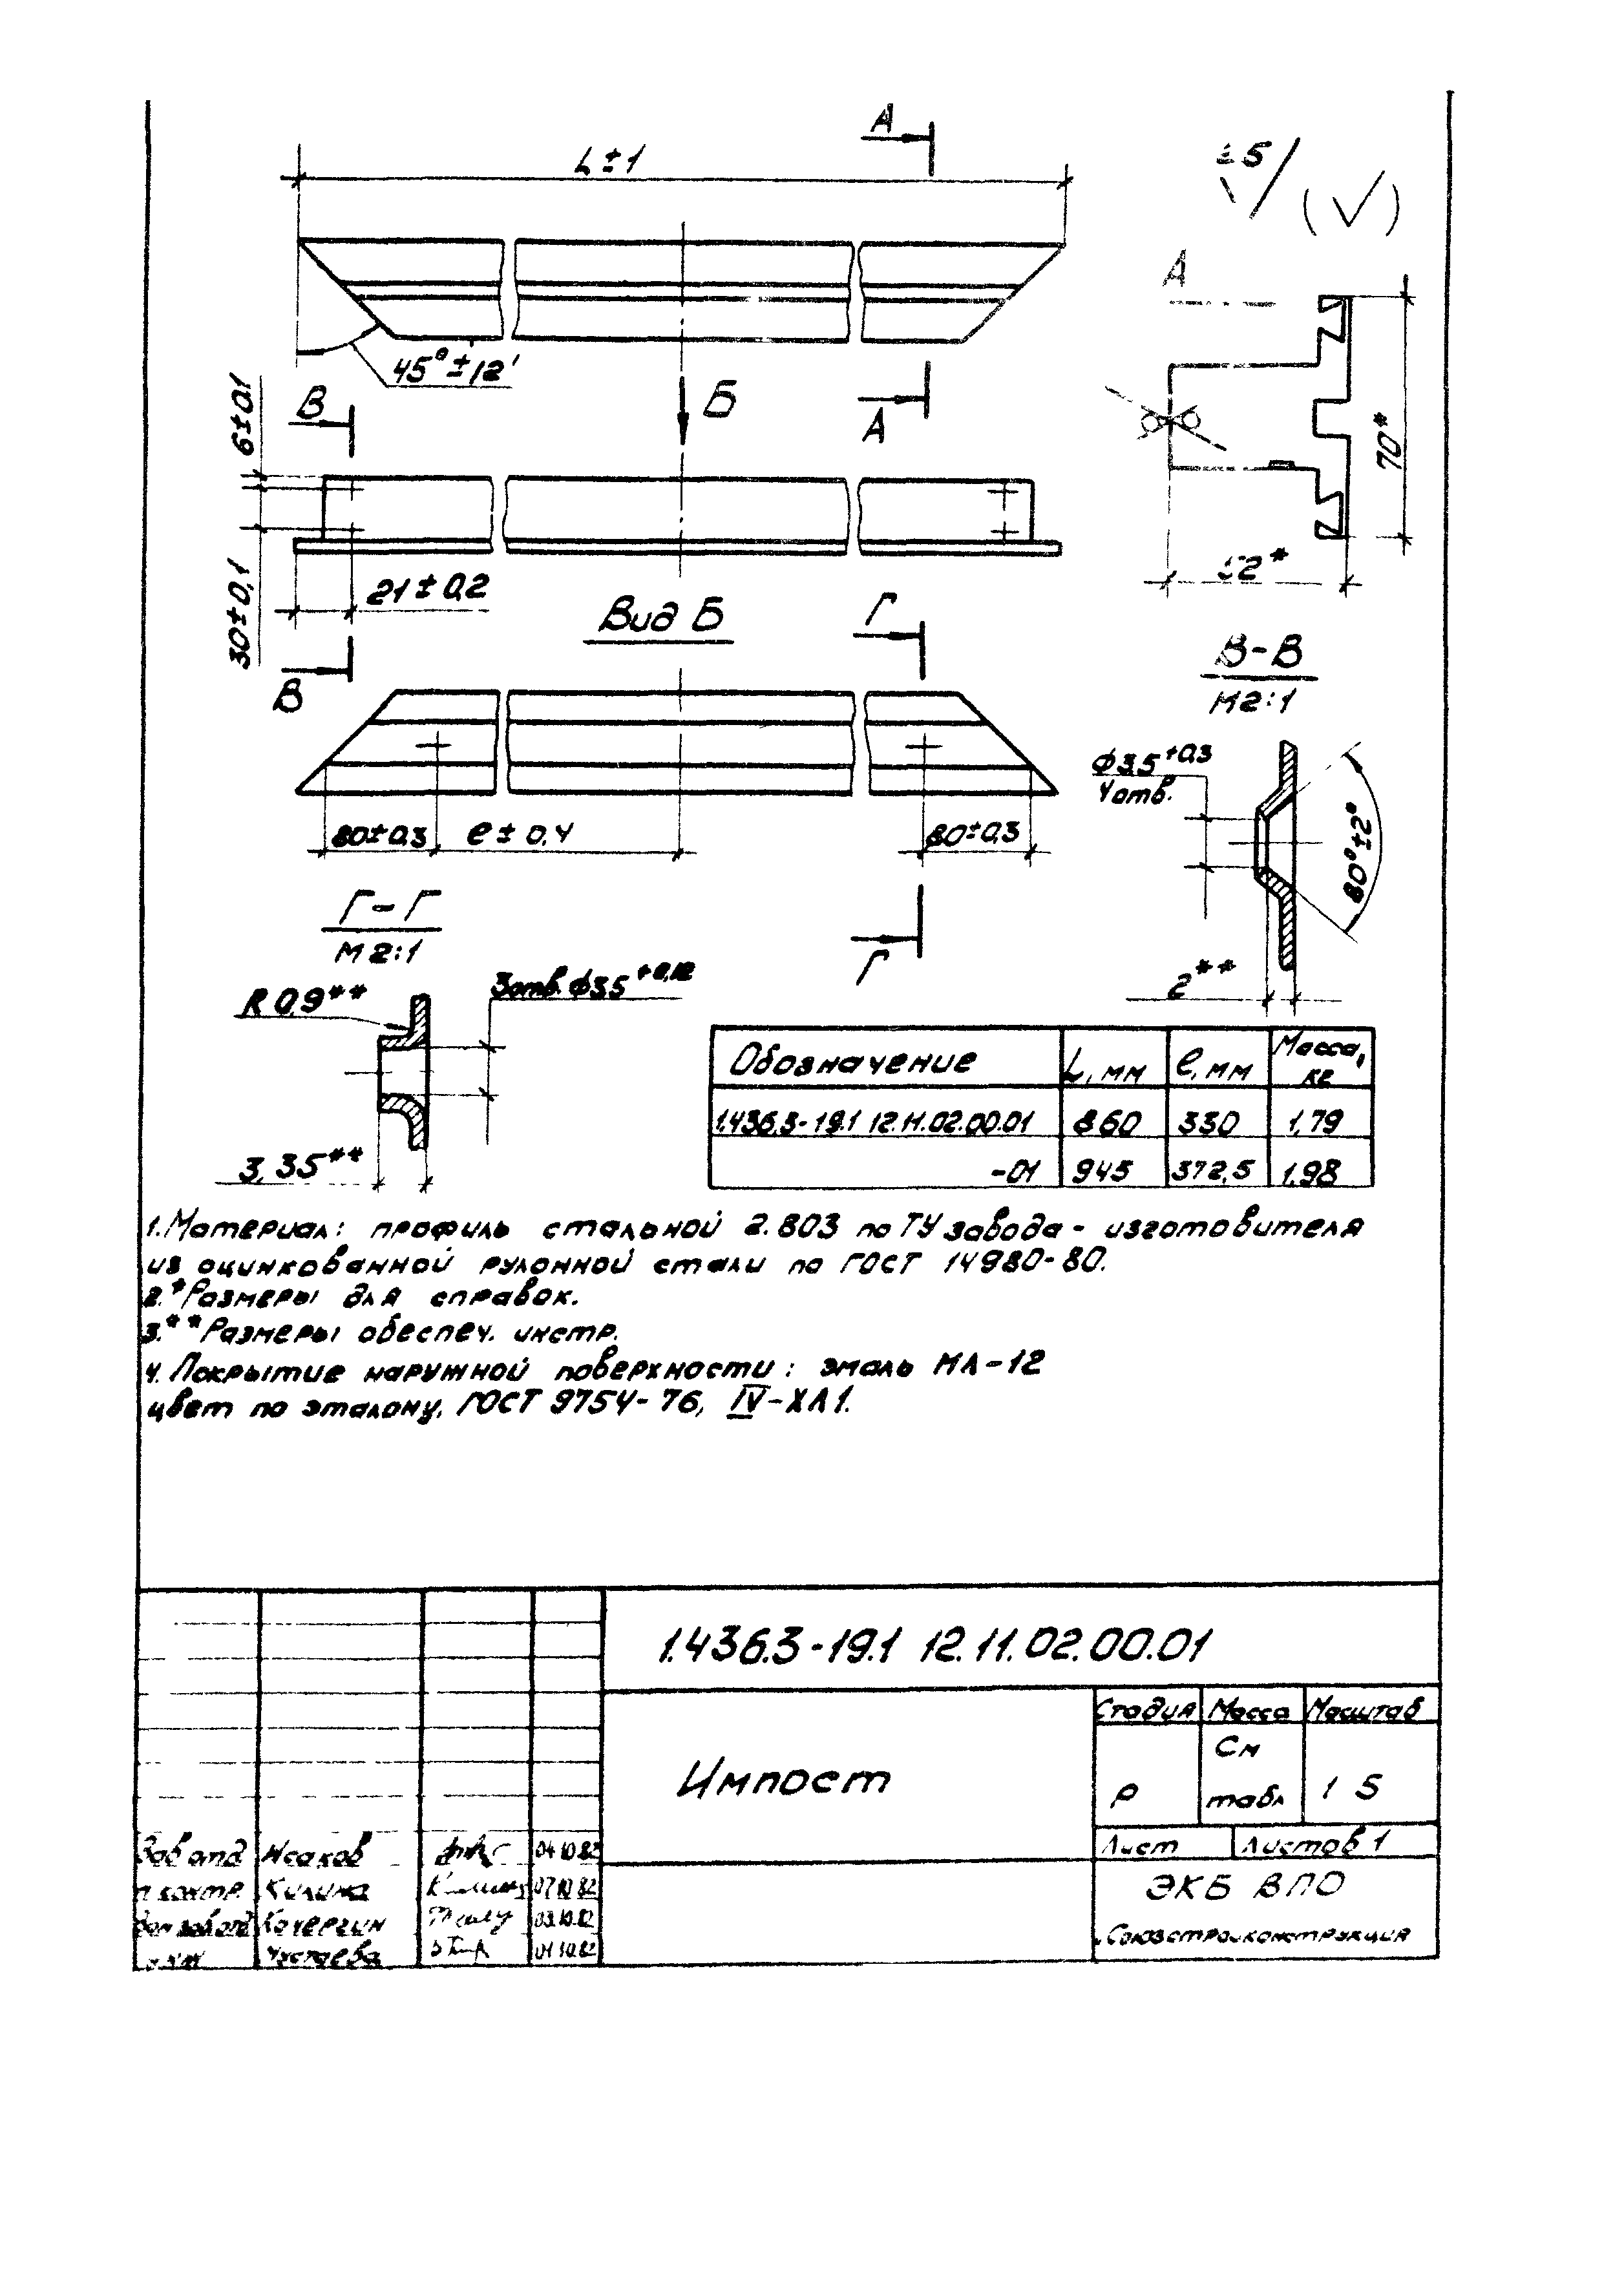 А
L±1
5
(√)
А
45°±12'
В
Б
А
6±0,1
70*
30±0,1
21±0,2
52*
Вид Б
Г
В
В-В
М2:1
ф3,5+0,3
4отв.
80°±2°
80±0,3
е±0,4
80±0,3
Г-Г
М2:1
Г
2**
R 0,9**
3отв. ф3,5+0,12
3,35**
Обозначение L, мм е, мм Масса, кг
1.436.3-19.1 12.11.02.00.01 860 330 1,79
-01 945 372,5 1,98
1. Материал: профиль стальной 2.803 по ТУ завода-изготовителя
из оцинкованной рулонной стали по ГОСТ 14980-80.
2.*Размеры для справок.
3.**Размеры обеспеч. инстр.
4. Покрытие наружной поверхности: эмаль МЛ-12
цвет по эталону, ГОСТ 9754-76, IV-ХЛ1.
1.436.3-19.1 12.11.02.00.01
Стадия Масса Масштаб
Импост
Р
См
табл
1 5
Лист Листов 1
Зав отд Исаков 04.10.82
н.контр. Килина 07.10.82
Кочергин 03.10.82
01.10.82
ЭКБ ВПО
Союзстройконструкция